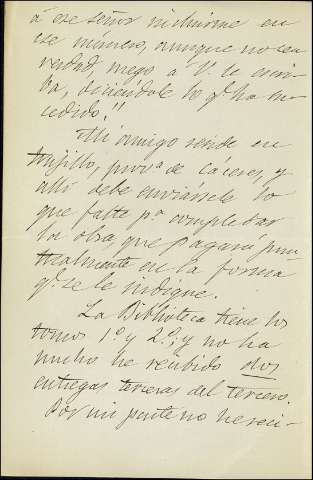 á ese señor incluirme en
ese número, aunque no con
verdad, ruego á V. le escri-
ba, diciéndole lo q.e ha su-
cedido."
Mi amigo reside en
Trujillo, prov.a de Cáceres, y
allí debe enviársele lo
que falte p.a completar
la obra, que pagará pun-
tualmente en la forma
q.e se le indique.
La Biblioteca tiene los
tomos 1.o y 2.o; y no ha
mucho he recibido dos
entregas terceras del tercero.
Por mi parte no he reci-